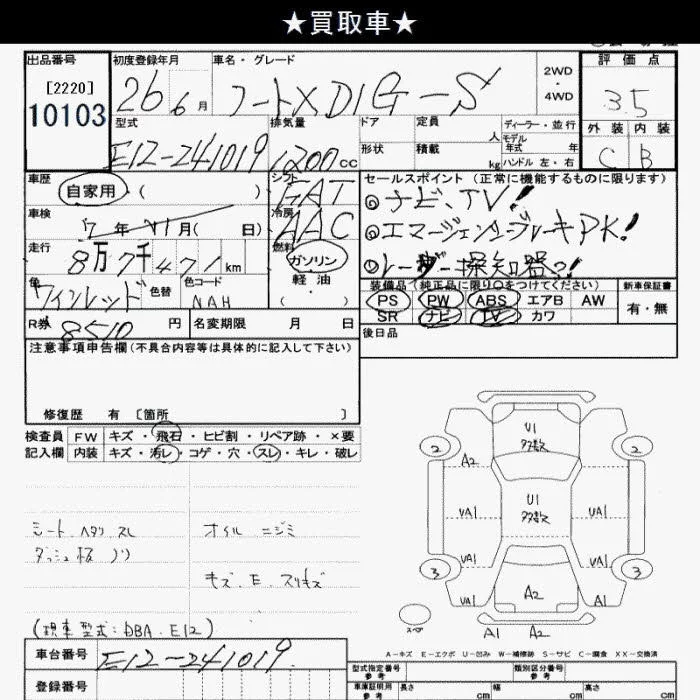 ★買取車★
出品番号 初度登録年月 車名・グレード 2WD 4WD 評価点
[2220]
10103
26 6月 ノートX DIG-S 3.5
型式 排気量 ドア 定員 人 ディーラー・並行 外装 内装
形状 積載 kg モデル年式 年 ハンドル 左・右
E12-241019 1200cc C B
車歴 自家用・( ) シフト FAT セールスポイント(正常に機能するものに限ります)
◎ナビ、TV!
車検 7年 11月( 日) 冷房 AAC ◎エマージェンシーブレーキPK!
走行 8万7千471km 燃料 ガソリン・軽油・( ) ◎レーダー探知器っ!
色 ワインレッド 色替 色コード NAH
装備品(純正品に限り○をつけてください) 新車保証書
PS PW ABS エアB AW 有・無
SR ナビ TV カワ
R券 8510円 名変期限 月 日 後日品
注意事項申告欄(不具合内容等は具体的に記入して下さい)
修復歴 有〔箇所 〕
検査員記入欄 FW キズ・飛石・ヒビ割・リペア跡・×要
内装 キズ・汚レ・コゲ・穴・スレ・キレ・破レ
シート ヘタリ スレ オイル ニジミ
ダッシュ板 ノリ
キズ・E・スリキズ
(現車型式:DBA-E12)
U1 多数
2 2
A2
U1 多数
UA1 UA1
UA1 UA1
3 3
UA1 A2 A1
スペア
A1 A2
A-キズ E-エクボ U-凹み W-補修跡 S-サビ C-腐食 XX-交換済
車台番号 E12-241019
登録番号
型式指定番号 参考 類別区分番号 参考
車庫証明用 参考 長さ cm 幅 cm 高さ cm